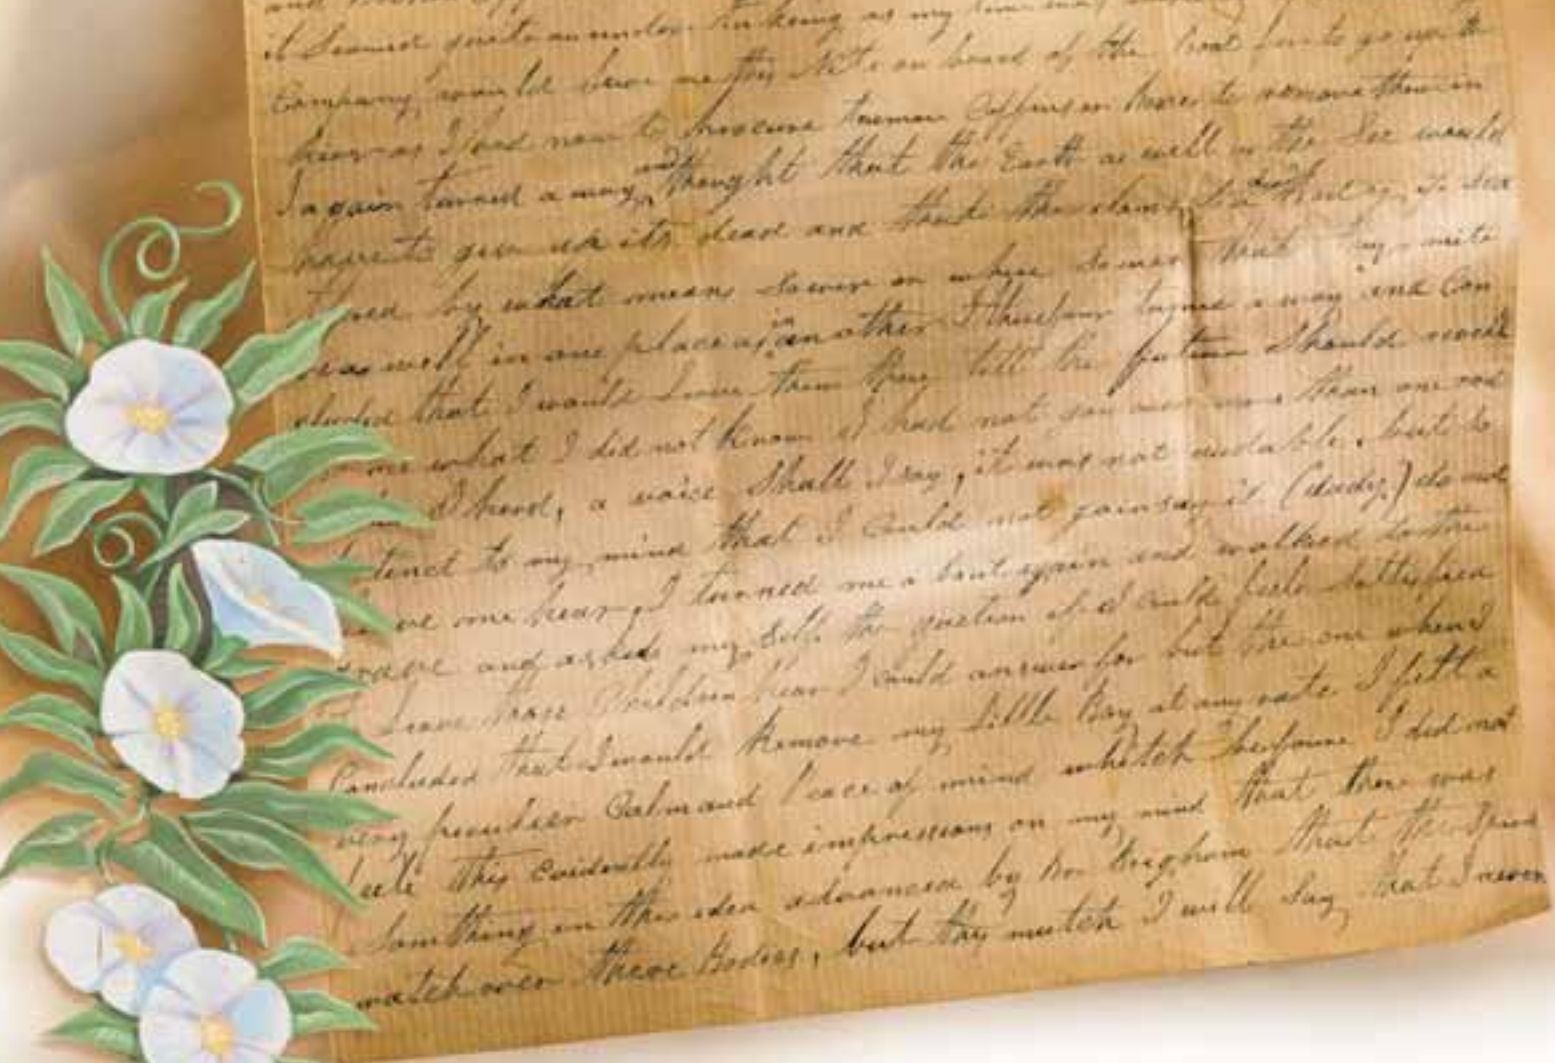 it seemed quite an undertaking as my time was
Company would leave me this Nite on board of the boat for to go up the
as I had now to procure Coffins or boxes to remove them in
I again turned away and thought that the Earth as well as the Sea would
have to give up its dead and that the slain
by what means soever or where soever that
as well in one place as in another I therefore turned away and Con
cluded that I would leave them there till the future should reveal
me what I did not know I had not got more than one rod
I heard, a voice Shall I say, it was not audable, but so
tinct to my mind that I could not gainsay it (dady,) do not
leave me hear, I turned me a bout again and walked to the
grave and asked my Self the question if I could feele sattisfied
leave those Children hear I could answer for but the one when I
Concluded that I would Remove my little Boy at any rate I felt a
very peculier Calm and Peace of mind whitch before I did not
feele this evidently made impressions on my mind that there was
Something in the idea advanced by Br. Brigham that the Spirits
watch over these Bodies, but this mutch I will Say, that I never